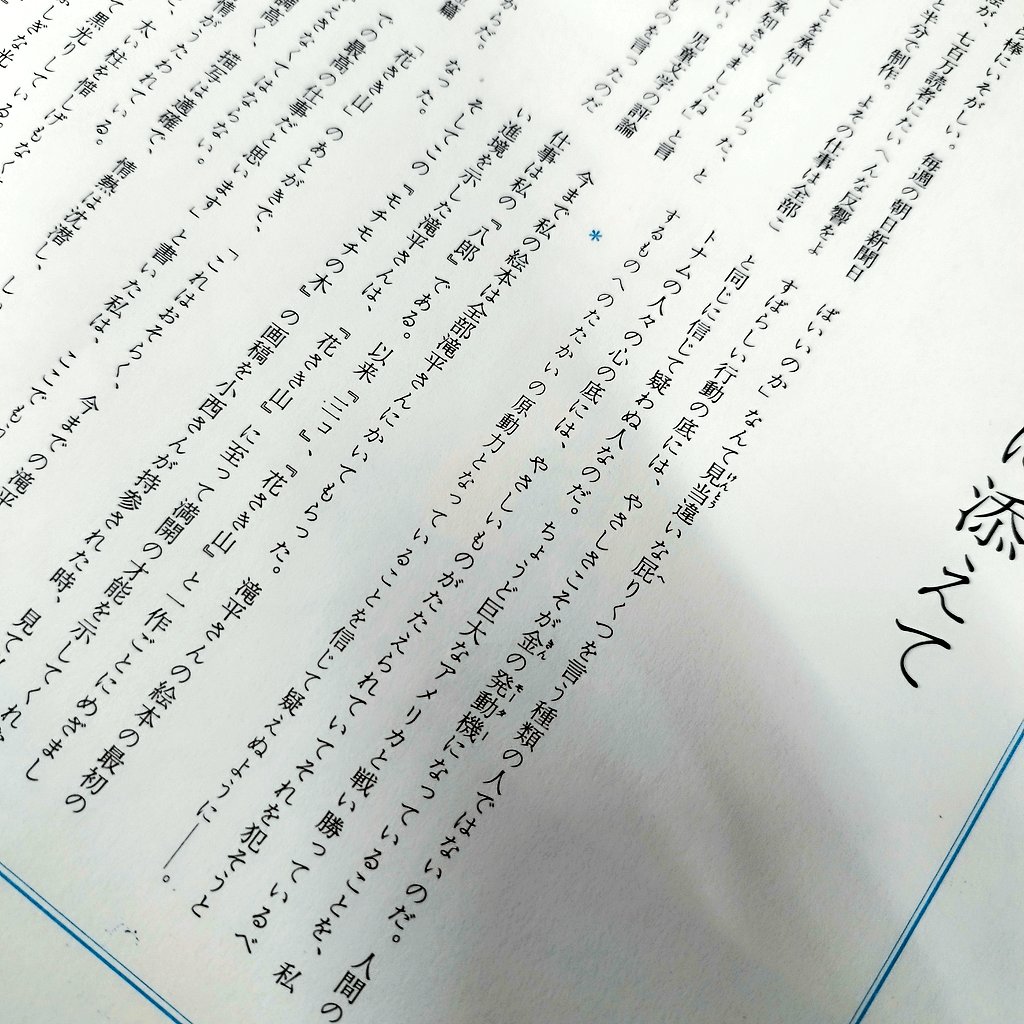 に添えて
棒にいそがしい。毎週の朝日新聞日
七百万読者にたいへんな反響をよ
と半分で制作。よその仕事は全部こ
とを承知してもらった、と
承知させましたね」と言
ない。児童文学の評論
ものを言ったのだ
からだ。
篇
ばいいのか」なんて見当違いな屁りくつを言う種類の人ではないのだ。人間の
すばらしい行動の底には、やさしさこそが金の発動機になっていることを、私
と同じに信じて疑わぬ人なのだ。ちょうど巨大なアメリカと戦い勝っているべ
トナムの人々の心の底には、やさしいものがたたえられていてそれを犯そうと
するものへのたたかいの原動力となっていることを信じて疑えぬように――。
*
今まで私の絵本は全部滝平さんにかいてもらった。滝平さんの絵本の最初の
仕事は私の『八郎』である。以来『三コ』、『花さき山』と一作ごとにめざまし
い進境を示した滝平さんは、『花さき山』に至って満開の才能を示してくれ
そしてこの『モチモチの木』の画稿を小西さんが持参された時、見て
なった。
「花さき山」のあとがきで、「これはおそらく、今までの滝平
ての最高の仕事だと思います」と書いた私は、ここでもう
えさなくてはならない。
調高く、描写は適確で、情熱は沈潜し、し
情がうたわれている。
太い柱を惜しげもなく
て黒光りしている。
しぎな光